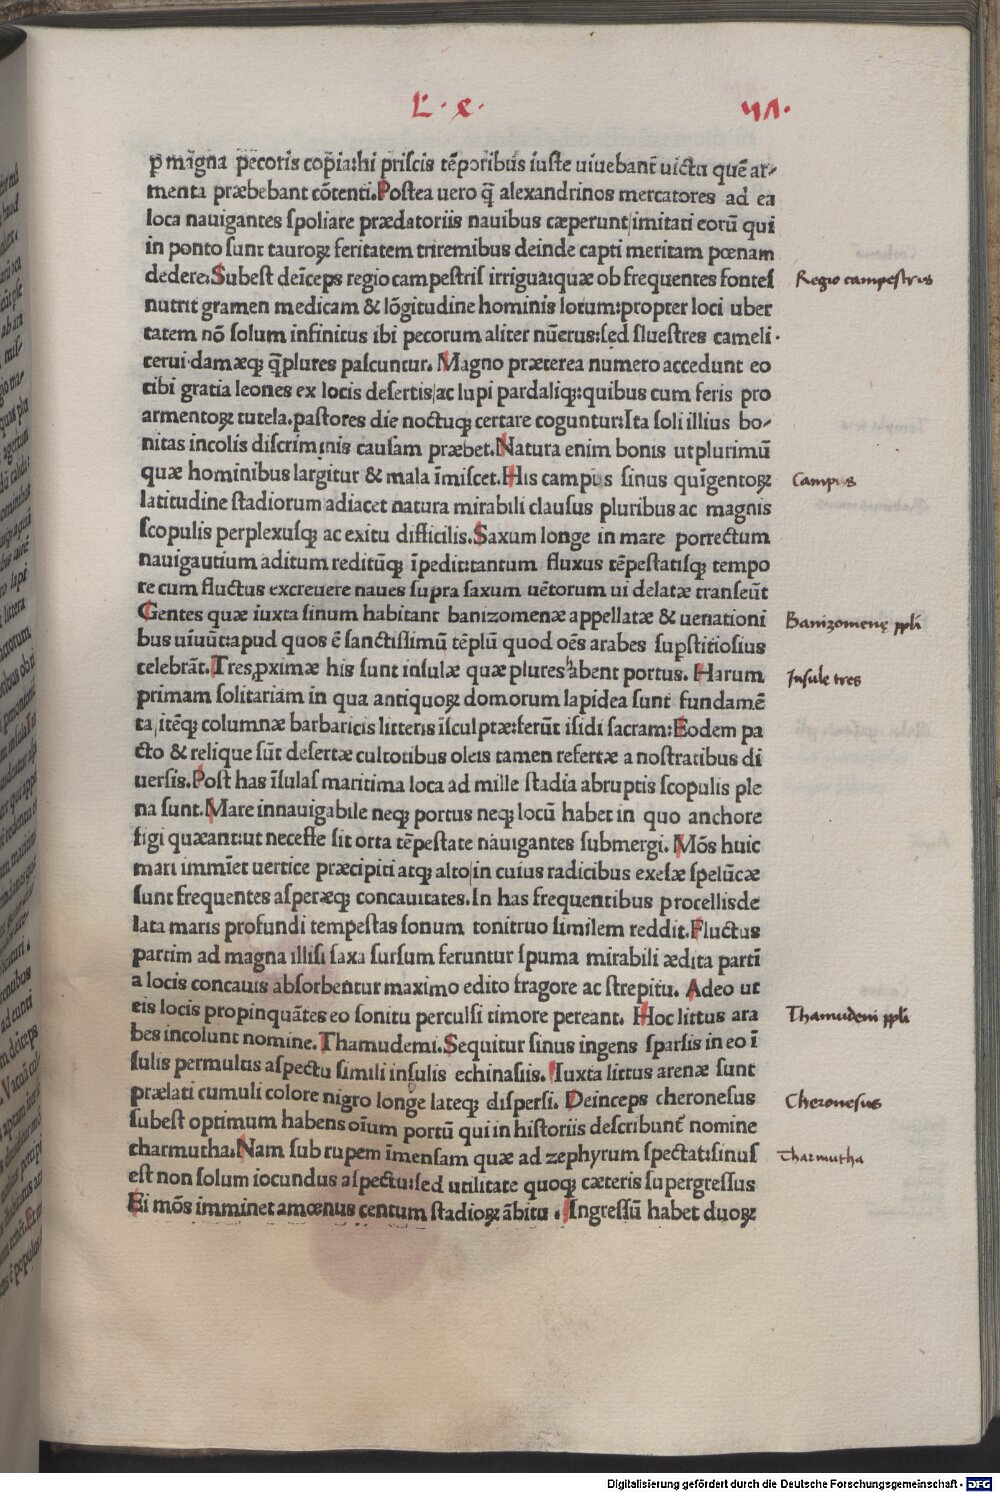 L · x ·
p̄ magna pecoris copia:hi priſcis tēporibus iuſte uiuebant uictu quē ar-
menta præbebant cōtenti.Poſtea uero q̄ alexandrinos mercatores ad ea
loca nauigantes ſpoliare prædatoriis nauibus cæperunt/imitati eorū qui
in ponto ſunt tauroꝝ feritatem triremibus deinde capti meritam pœnam
dedere.Subeſt deīceps regio campeſtris irrigua:quæ ob frequentes fontes
nutrit gramen medicam & lōgitudine hominis lotum:propter loci uber
tatem nō ſolum infinitus ibi pecorum aliter nūerus:ſed ſlueſtres cameli·
cerui·damæqꝫ q̄plures paſcuntur. Magno præterea numero accedunt eo
cibi gratia leones ex locis deſertis/ac lupi pardaliqꝫ:quibus cum feris pro
armentoꝝ tutela.paſtores die noctuqꝫ certare coguntur:Ita ſoli illius bo-
nitas incolis diſcriminis cauſam præbet.Natura enim bonis ut plurimū
quæ hominibus largitur & mala īmiſcet.His campus ſinus quīgentoꝝ
latitudine ſtadiorum adiacet natura mirabili clauſus pluribus ac magnis
ſcopulis perplexuſqꝫ ac exitu difficilis.Saxum longe in mare porrectum
nauigautium aditum reditūqꝫ īpedit:tantum fluxus tēpeſtatiſqꝫ tempo
re cum fluctus excreuere naues ſupra ſaxum uētorum ui delatæ tranſeūt
Gentes quæ iuxta ſinum habitant banizomenæ appellatæ & uenationi
bus uiuūt:apud quos ē ſanctiſſimū tēplū quod oēs arabes ſuꝑſtitioſius
celebrāt.Tres ꝓximæ his ſunt inſulæ quæ plures habent portus. Harum
primam ſolitariam in qua antiquoꝝ domorum lapidea ſunt fundamē
ta/itēqꝫ columnæ barbaricis litteris īſculptæ:ferūt iſidi ſacram:Eodem pa
cto & relique ſūt deſertæ cultotibus oleis tamen refertæ a noſtratibus di
uerſis.Poſt has īſulas maritima loca ad mille ſtadia abruptis ſcopulis ple
na ſunt.Mare innauigabile neqꝫ portus neqꝫ locū habet in quo anchore
figi quæant:ut neceſſe ſit orta tēpeſtate nauigantes ſubmergi. Mōs huic
mari immīet uertice præcipiti atqꝫ alto/in cuius radicibus exeſæ ſpelūcæ
ſunt frequentes aſperæqꝫ concauitates.In has frequentibus procellis de
lata maris profundi tempeſtas ſonum tonitruo ſimilem reddit.Fluctus
partim ad magna illiſi ſaxa ſurſum feruntur ſpuma mirabili ædita partī
a locis concauis abſorbentur maximo edito fragore ac ſtrepitu. Adeo ut
eis locis propinquātes eo ſonitu perculſi timore pereant. Hoc littus ara
bes incolunt nomine.Thamudemi.Sequitur ſinus ingens ſparſis in eo ī
ſulis permultis aſpectu ſimili inſulis echinasiis. Iuxta littus arenæ ſunt
prælati cumuli colore nigro longe lateqꝫ diſperſi. Deinceps cheroneſus
ſubeſt optimum habens oīum portū qui in hiſtoriis deſcribunt̄ nomine
charmutha.Nam ſub rupem īmenſam quæ ad zephyrum ſpectat:ſinus
eſt non ſolum iocundus aſpectu:ſed utilitate quoqꝫ cæteris ſupergreſſus
Ei mōs imminet amœnus centum ſtadioꝝ ābitu . Ingreſſū habet duoꝝ
Regio campeſtris
Campus
Banizomenę ppli
Inſule tres
Thamudeni ppli
Cheroneſus
Charmutha
Digitalisierung gefördert durch die Deutsche Forschungsgemeinschaft - DFG